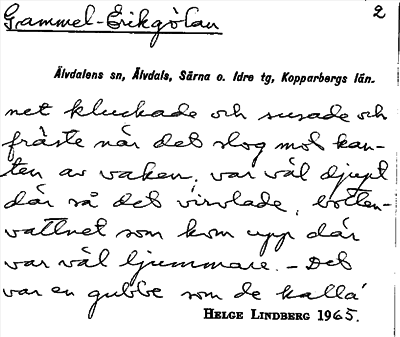 Gammel-Erikgölan 2
Älvdalens sn, Älvdals, Särna o. Idre tg, Kopparbergs län.
net kluckade och susade och
fräste när det slog mot kan-
ten av vaken, var väl djupt
där så det virvlade, botten-
vattnet som kom upp där
var väl ljummare. – Det
var en gubbe som de kalla'
HELGE LINDBERG 1965.